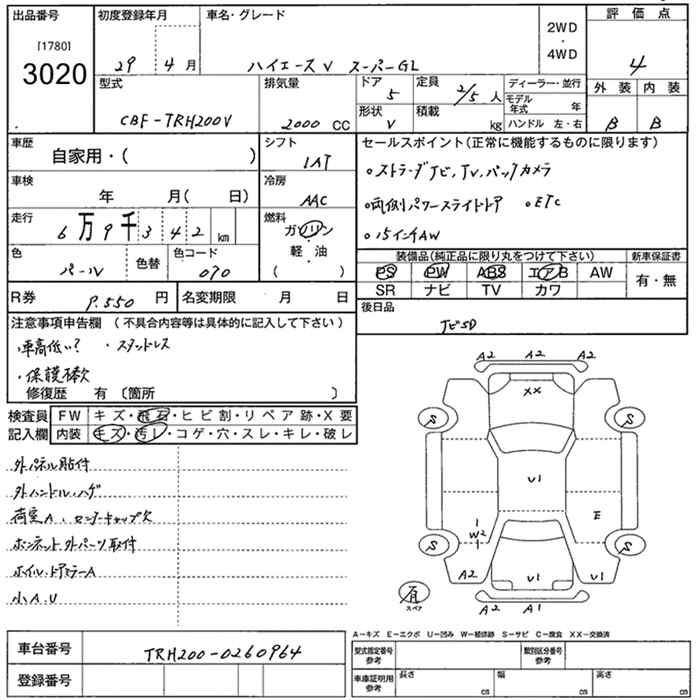 出品番号 初度登録年月 車名・グレード 2WD・4WD 評価点
[1780]
3020 29年 4月 ハイエースV スーパーGL 4
型式 排気量 ドア 5 定員 2/5人 ディーラー・並行 外装 内装
CBF-TRH200V 2000 CC 形状 V 積載 kg モデル年式 年 B B
ハンドル 左・右
車歴 自家用・( ) シフト 1AT セールスポイント(正常に機能するものに限ります)
車検 年 月( 日) 冷房 AAC
・ストラーダナビ、TV、バックカメラ
・両側パワースライドドア ・ETC
・15インチAW
走行 6万9千342km 燃料 ガソリン 軽・油 ( )
色 パール 色替 色コード 070
装備品(純正品に限り丸をつけて下さい) 新車保証書
PS PW ABS エアB AW 有・無
SR ナビ TV カワ
R券 P.550円 名変期限 月 日
後日品
ナビSD
注意事項申告欄 (不具合内容等は具体的に記入して下さい)
・車高低い? ・スタッドレス
・保護セ欠
修復歴 有 〔箇所 〕
検査員記入欄 FW キズ・飛石・ヒビ割・リペア跡・X要
内装 キズ・汚レ・コゲ・穴・スレ・キレ・破レ
外パネル貼付
外ハンドル・ハゲ
荷室A、センターキャップ欠
ボンネット外パーツ取付
ホイル、ドアミラーA
小A、U
A2 A2 A2
XX
S S
U1
E
1 W2
S S
A2 U1 U1
有 スペア
A2 A1
A-キズ E-エクボ U-凹み W-補修跡 S-サビ C-腐食 XX-交換済
車台番号 TRH200-0260964
型式指定番号 参考 類別区分番号 参考
登録番号
車庫証明用 参考 長さ cm 幅 cm 高さ cm